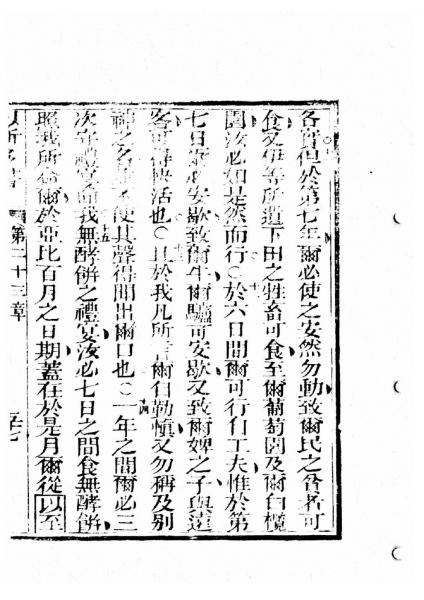 各實但於第七年爾必使之安然勿動致爾民之貧者可
食又伊等所遺下田之牲畜可食至爾葡萄園及爾白欖
園汝必如是然而行○於六日間爾可行自工夫惟於第
七日爾必安歇致爾牛爾驢可安歇又致爾婢之子與遠
客可得快活也○且於我凡所言爾自勤慎又勿稱及别
神之名勿使其聲得聞出爾口也○一年之間爾必三
次守禮宴向我無酵餅之禮宴汝必七日之間食無酵餅
照我所命爾於亞比百月之日期蓋在於是月爾從以至
第二十三章